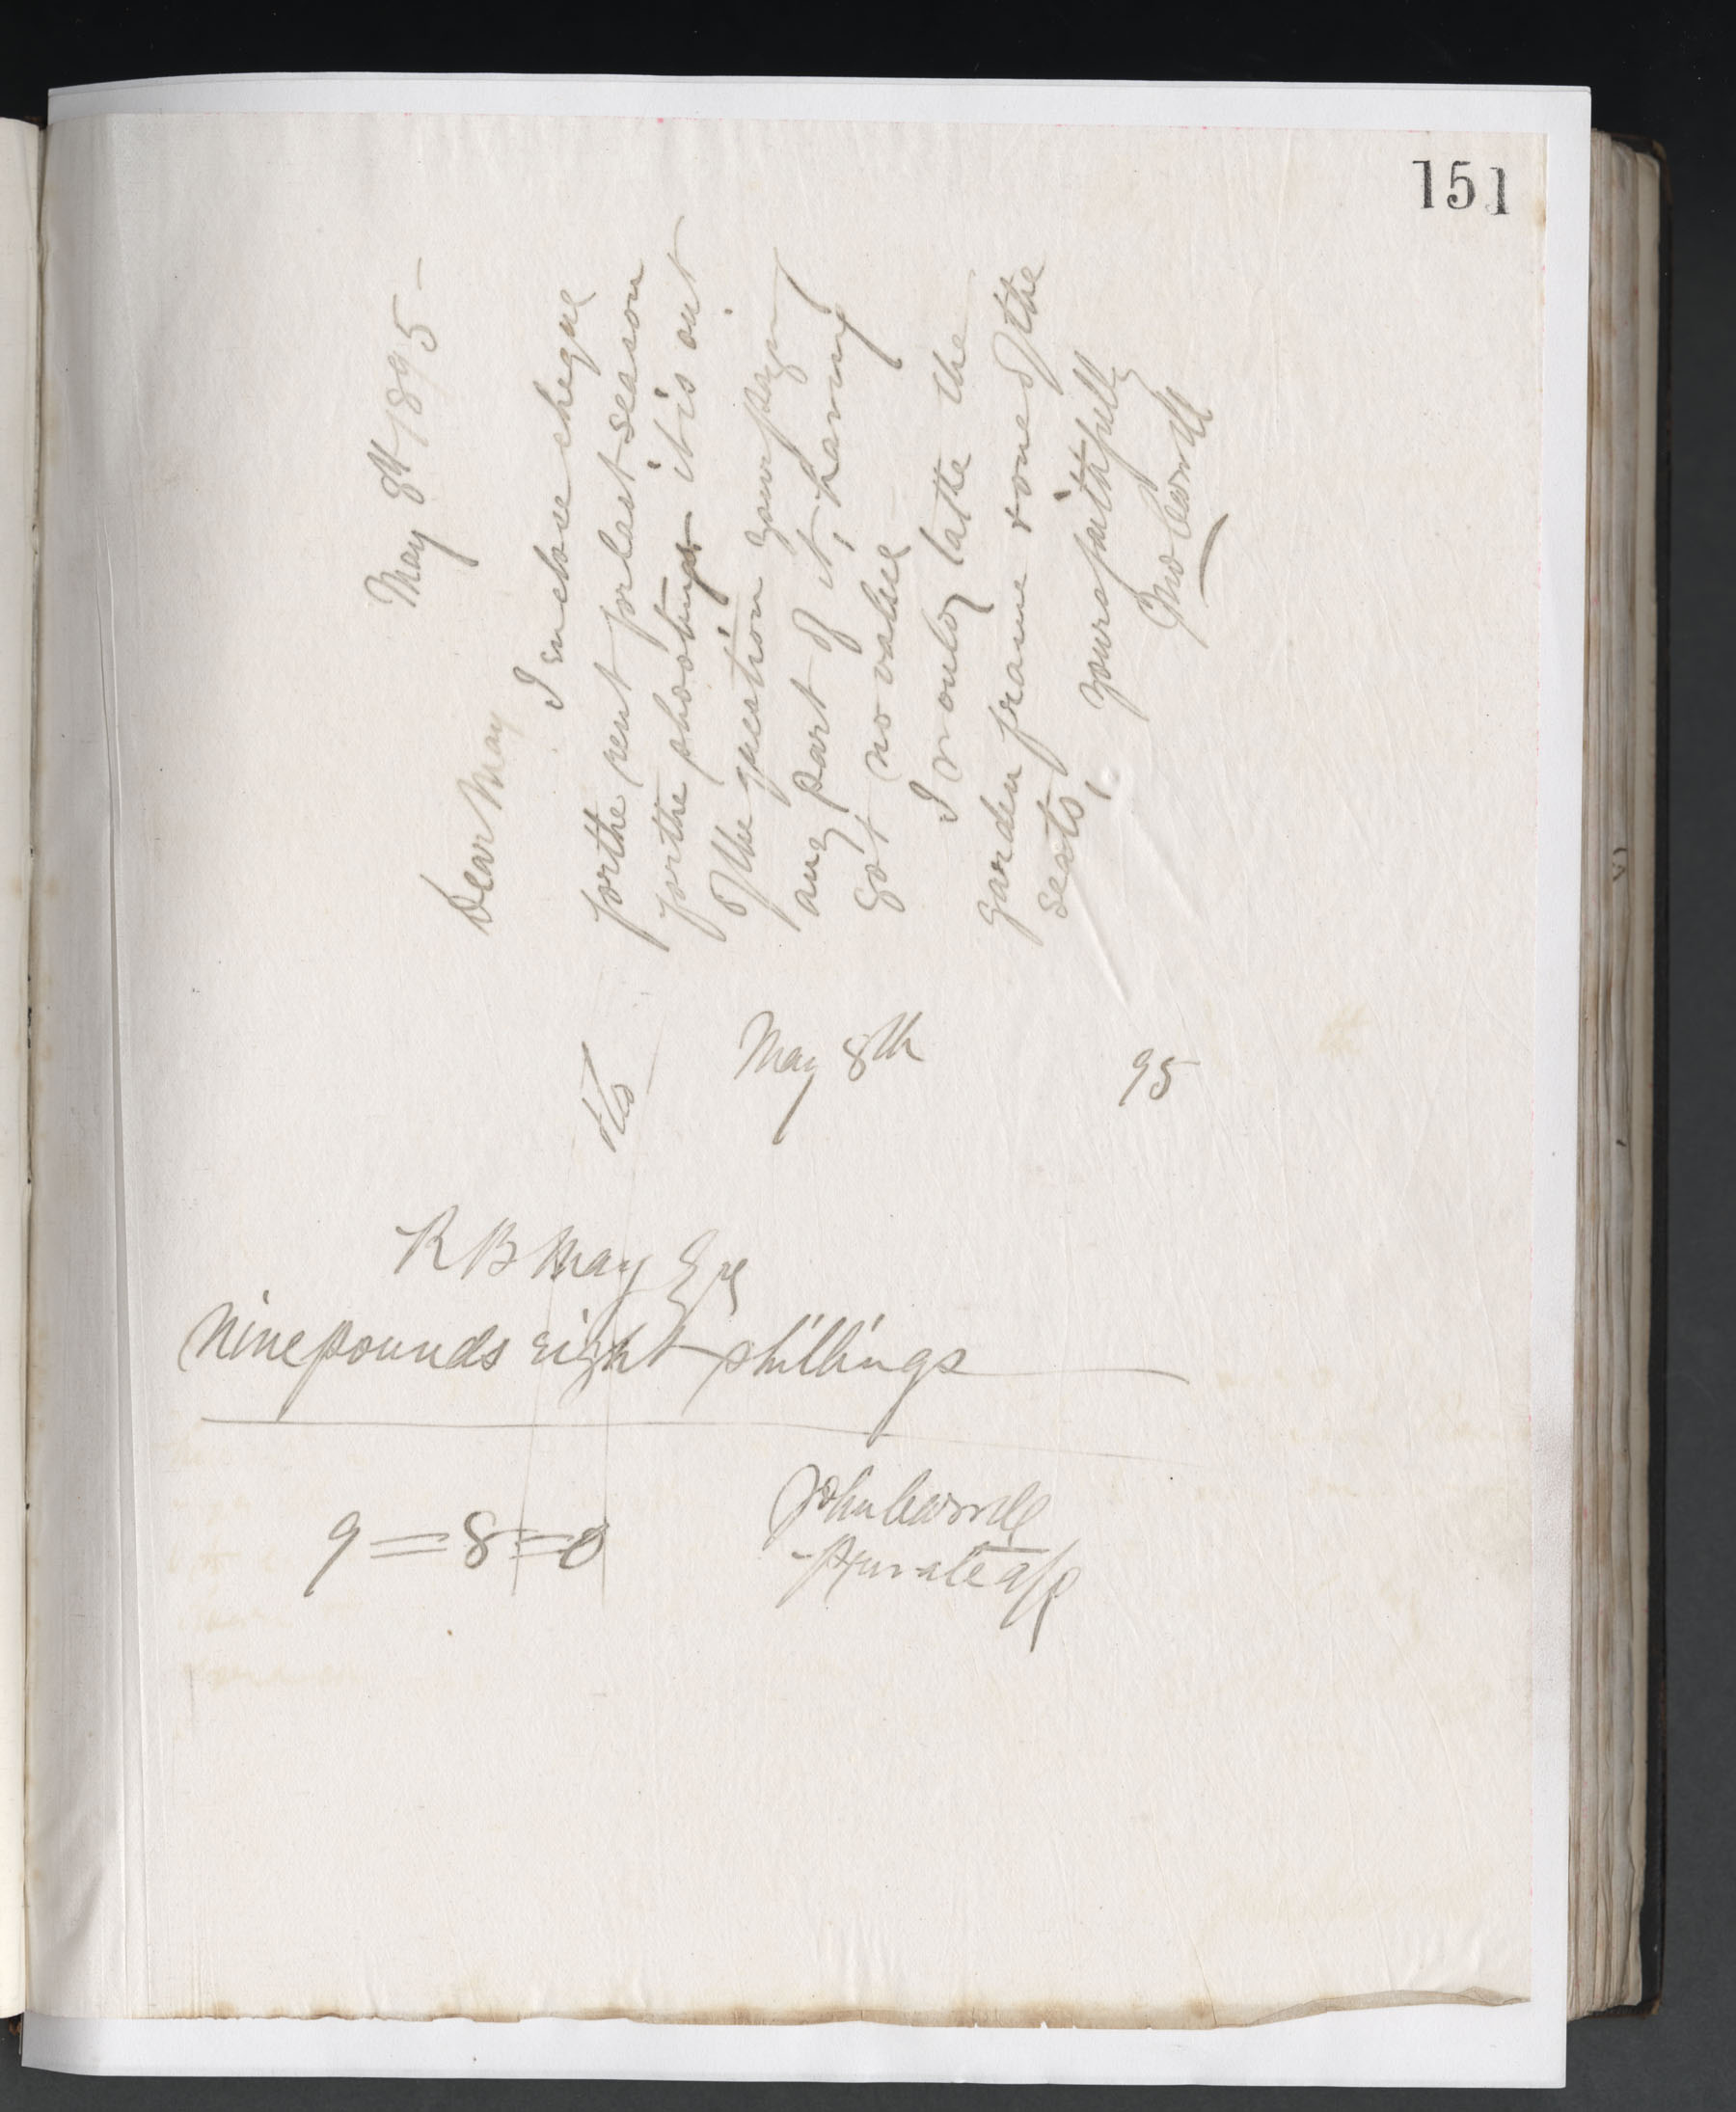 151
May 8th 1895 -
Dear May
I enclose cheque
for the rent for last season
for the shooting - it is out
of the question your paying
any part of it, having
got no value -
I would take the
garden frame & one of the
seats,
Yours faithfully
Jno
May 8th 95
R B May Esq
Nine pounds eight shillings
9=8=0
John
Private a/c